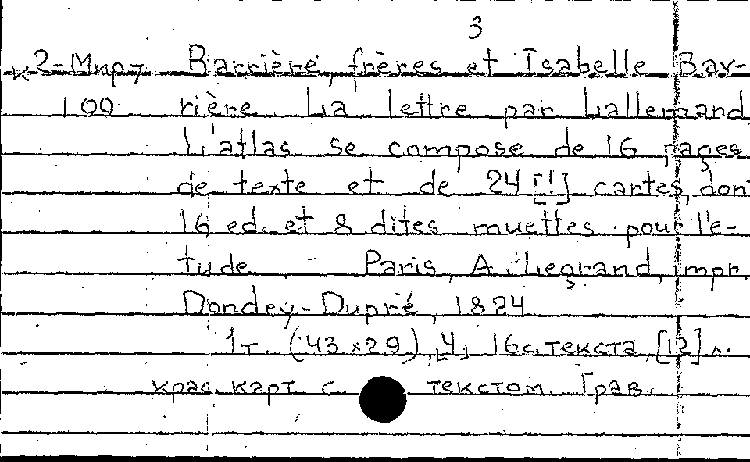 3
к 2-Мир7 Barrière, frères et Isabelle Bar-
100 rière. La lettre par Lallemand.
L'atlas se compose de 16 pages
de texte et de 24 [!] cartes, dont
16 ed. et 8 dites muettes pour l'é-
tude. Paris, A. Legrand, impr.
Dondey-Dupré, 1824
1т. (43×29), 4, 16 с. текста, [12] л.
крас. карт с текстом. Грав.